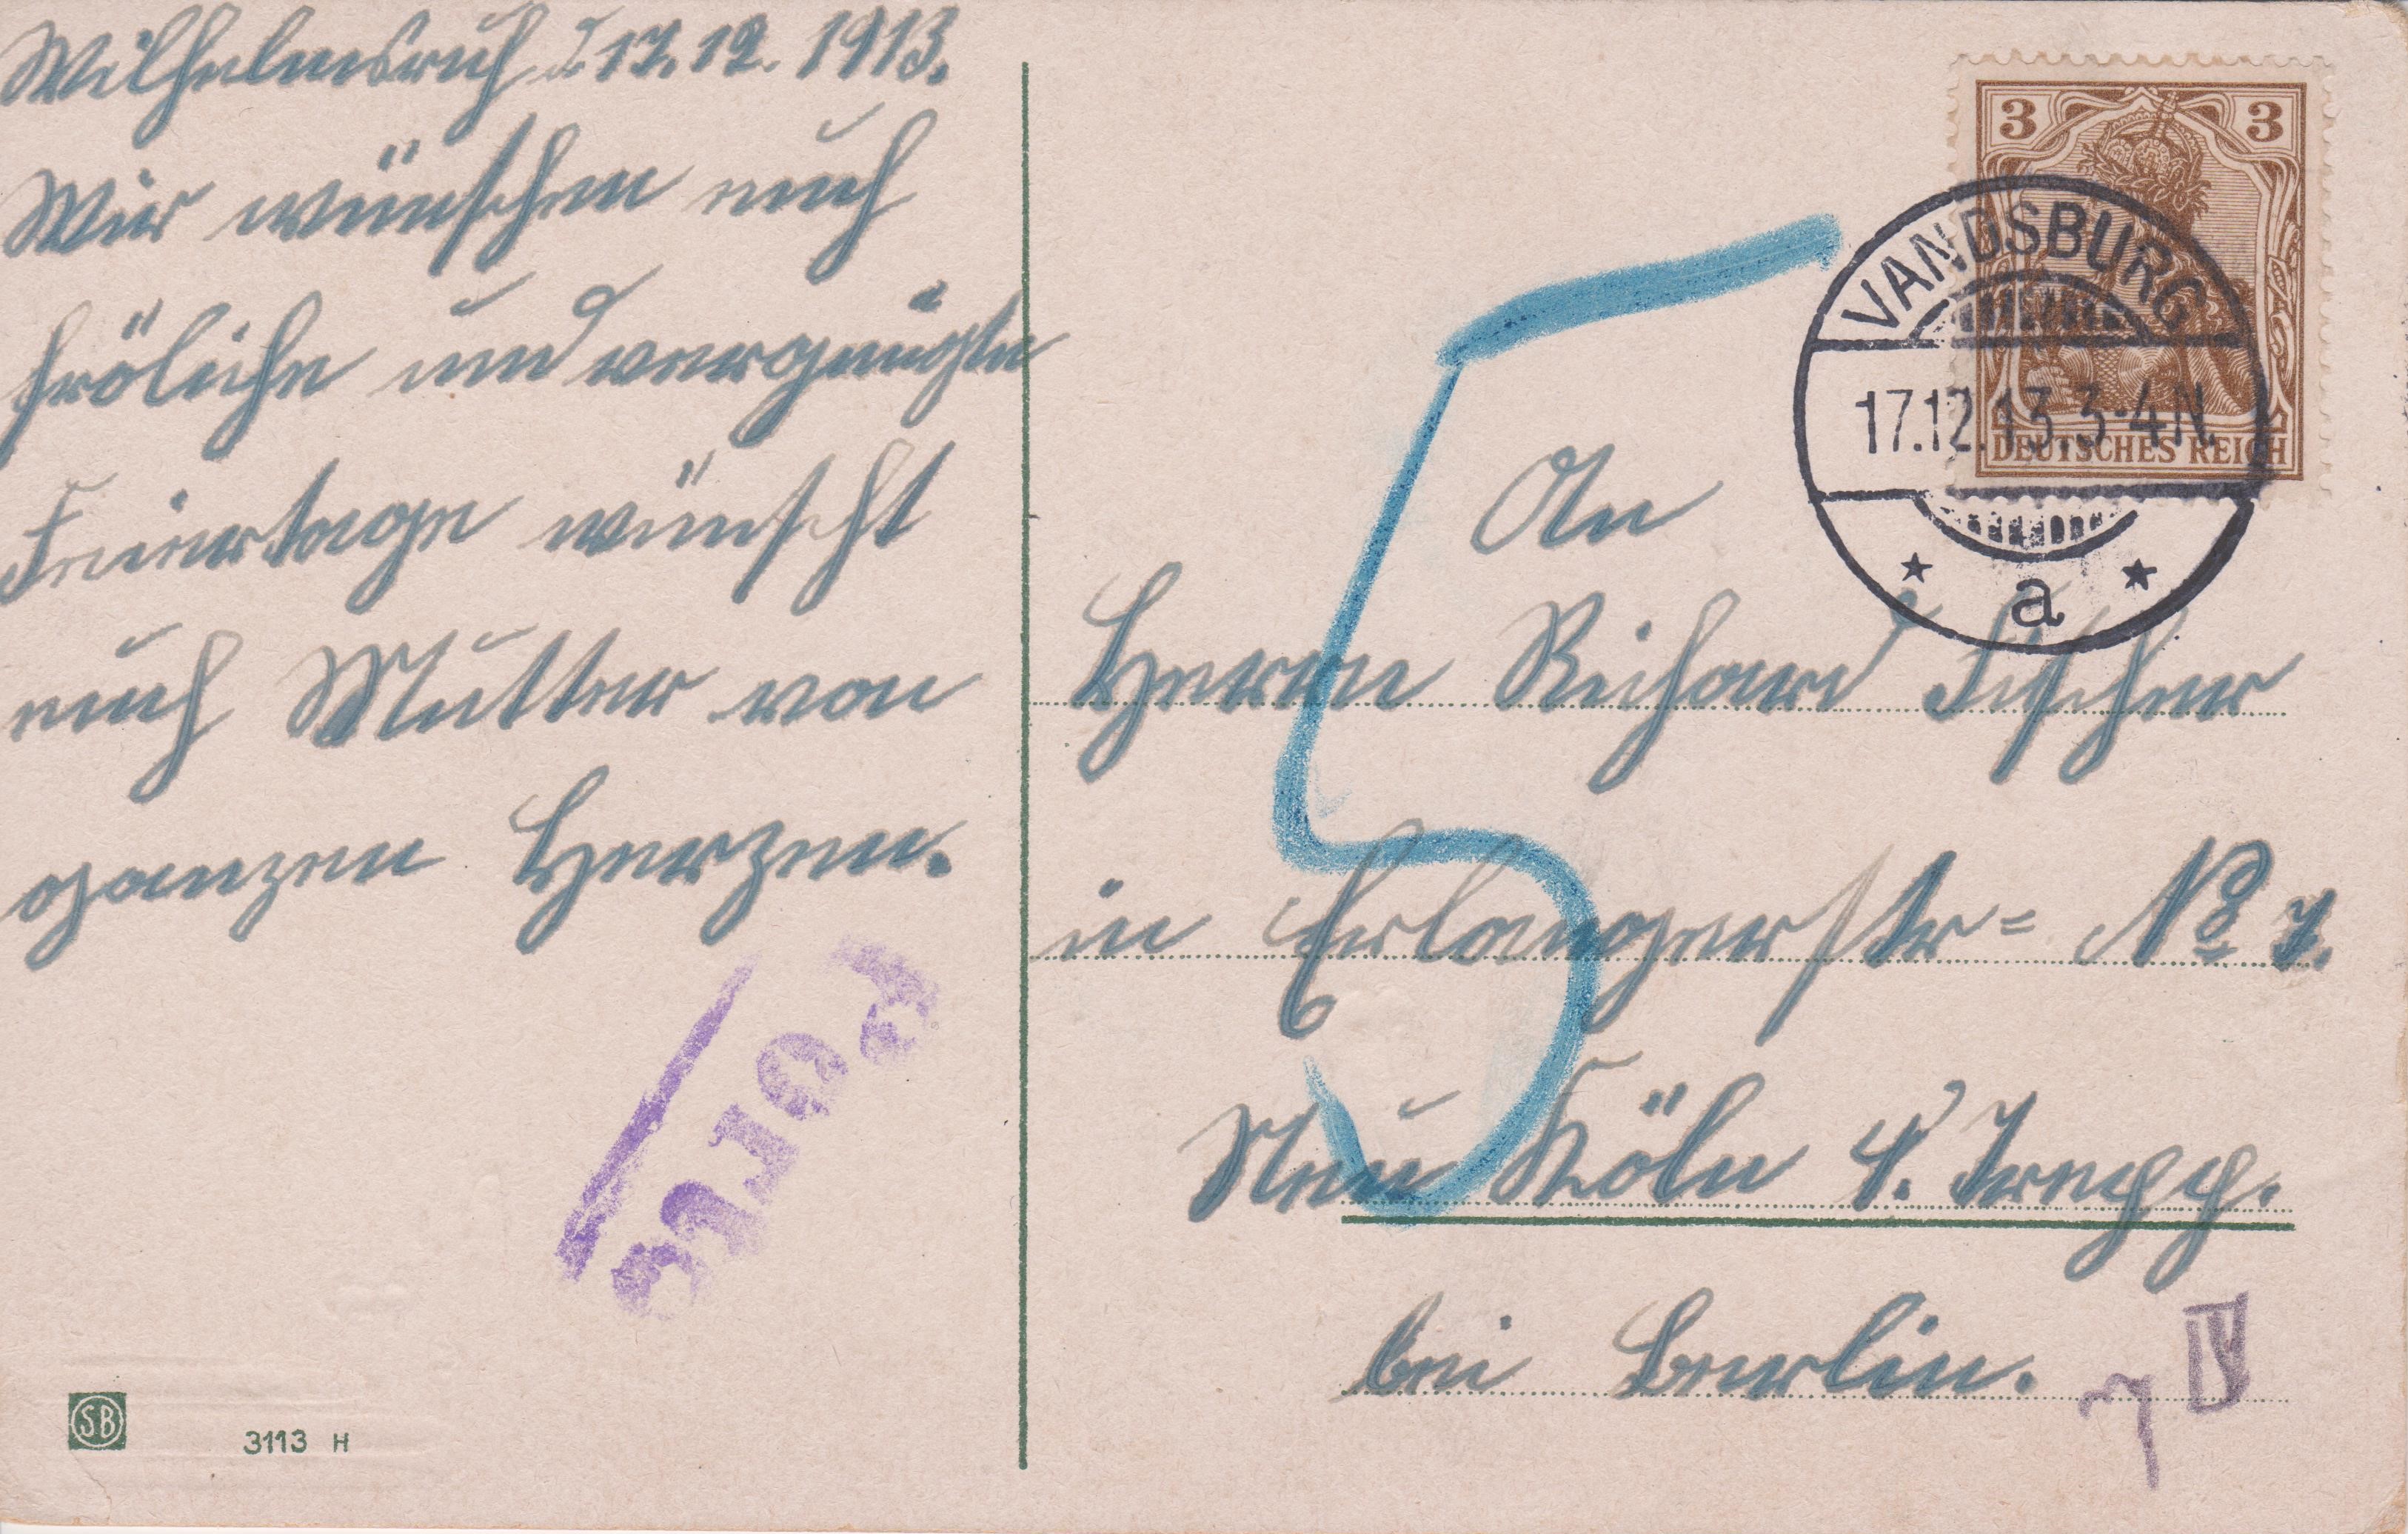 Wilhelmsruh d. 17.12.1913.
Wir wünschen euch
fröliche und vergnügte
Feiertage wünscht
euch Mutter von
ganzen Herzen.
Porto
SB
3113 H
3 3
DEUTSCHES REICH
VANDSBURG
17.12.13.3-4N.
* a *
5
An
Herrn Richard Fischer
in Erlangerstr= No 7.
Neu Köln 4. Trepp.
bei Berlin.
IV